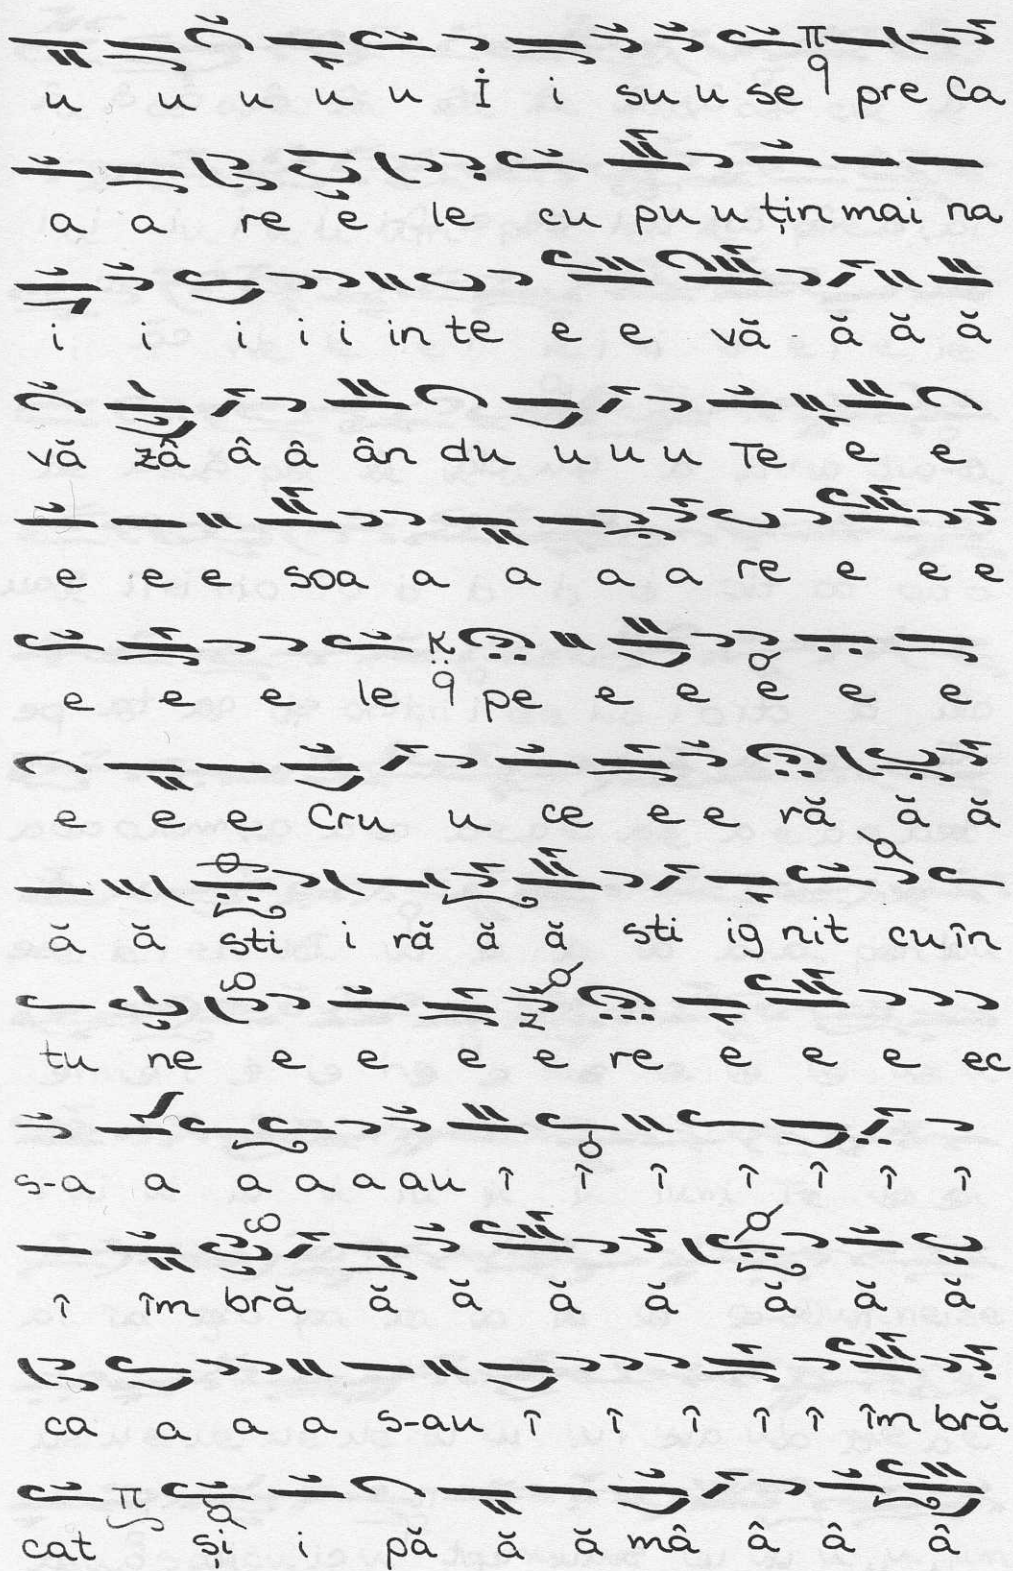 u u u u u İ i su u se pre Ca
a a re e le cu pu u țin mai na
i i i i i in te e e vă ă ă ă
vă zâ â â ân du u u u Te e e
e e e soa a a a a re e e e
e e e le pe e e e e e
e e e Cru u ce e e ră ă ă
ă ă sti i ră ă ă sti ig nit cu în
tu ne e e e e re e e e ec
s-a a a a a au î î î î î î î
î îm bră ă ă ă ă ă ă ă
ca a a a s-au î î î î î îm bră
cat și i pă ă ă mâ â â â